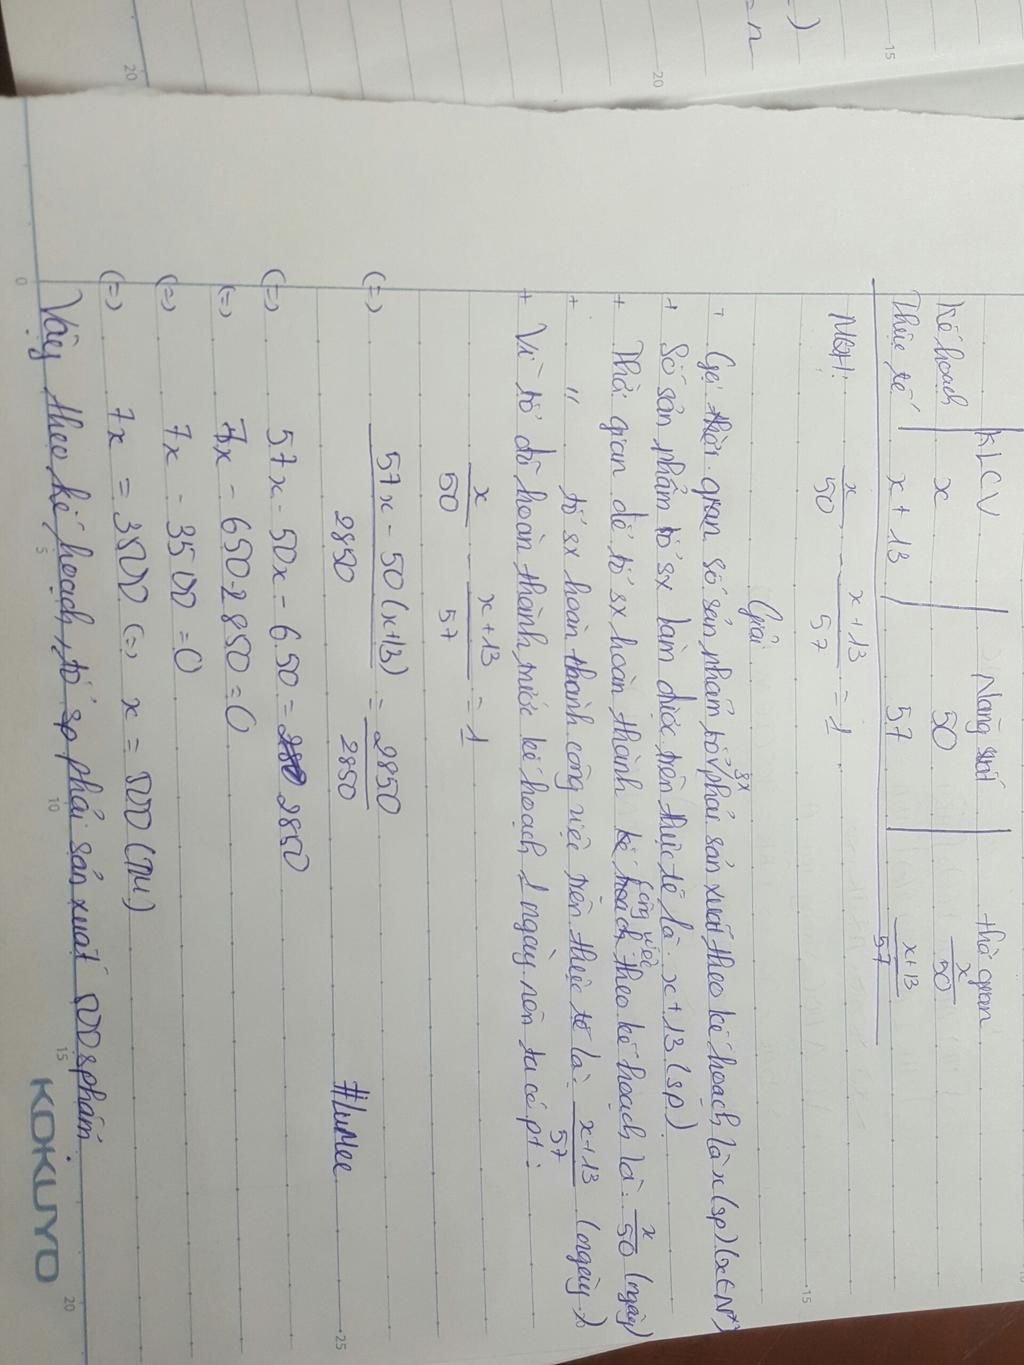 KLCV Năng suất thời gian
Kế hoạch x 50 x/50
Thực tế x + 13 57 x+13/57
Nháp: x/50 - x+13/57 = 1
Giải
+ Gọi thời gian số sản phẩm tổ sx phải sản xuất theo kế hoạch là x (sp) (x ∈ N*)
+ Số sản phẩm tổ sx làm được trên thực tế là x + 13 (sp)
+ Thời gian để tổ sx hoàn thành kế hoạch công việc theo kế hoạch là: x/50 (ngày)
+ " tổ sx hoàn thành công việc trên thực tế là: x+13/57 (ngày)
+ Vì tổ đã hoàn thành trước kế hoạch 1 ngày nên ta có pt:
x/50 - x+13/57 = 1
(=) 57x - 50(x+13)/2850 = 2850/2850
(=) 57x - 50x - 650 = 2850
(=) 7x - 650 - 2850 = 0
(=) 7x - 3500 = 0
(=) 7x = 3500 (=) x = 500 (TM)
Vậy theo kế hoạch, tổ sp phải sản xuất 500 sphẩm.
#LuMee
KOKUYO
0
5
10
15
20
15
25
20
20
15
= n